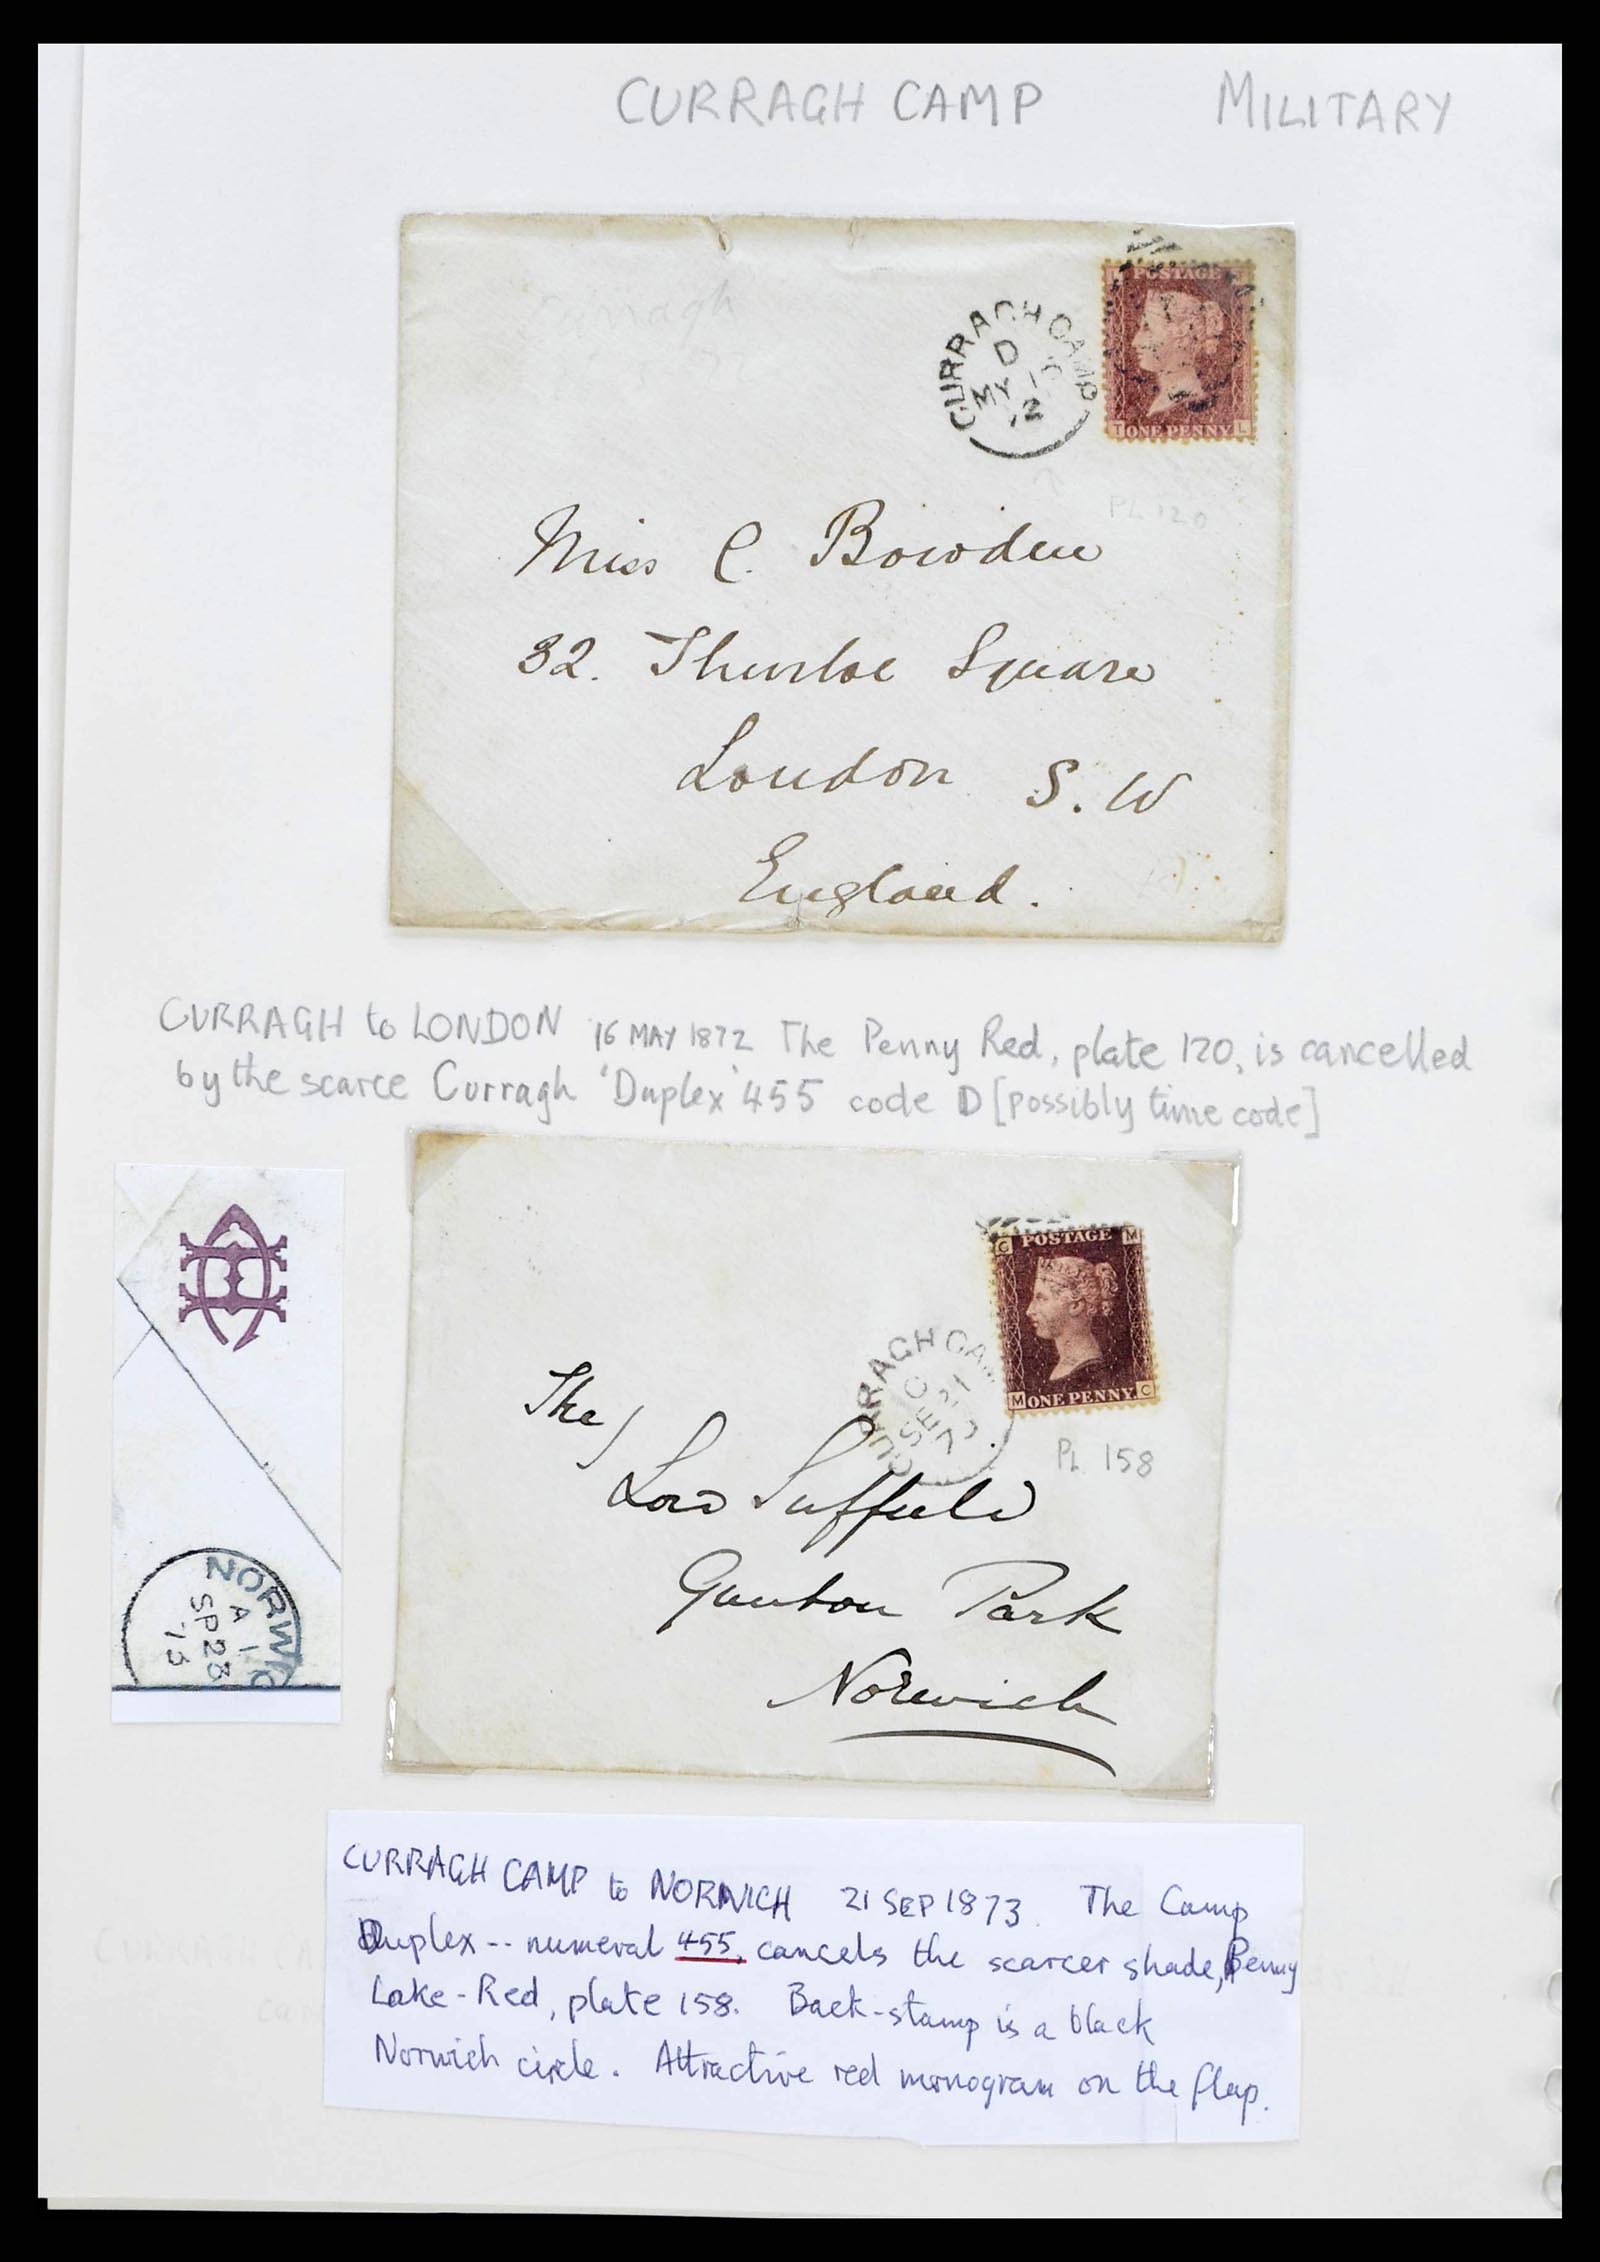 CURRAGH CAMP MILITARY
POSTAGE
ONE PENNY
T L
CURRAGH CAMP
D
MY 16
72
Curragh
PL 120
Miss C. Bowden
32. Thurloe Square
London S.W
England.
CURRAGH to LONDON 16 MAY 1872 The Penny Red, plate 120, is cancelled
by the scarce Curragh 'Duplex' 455 code D [possibly time code]
C POSTAGE M
M ONE PENNY. C
CURRAGH CAM
C
SE 21
73
PL 158
The
Lord Suffield
Gunton Park
Norwich
NORWIC
A 1
SP 28
73
CURRAGH CAMP to NORWICH 21 SEP 1873. The Camp
Duplex -- numeral 455, cancels the scarcer shade, Penny
Lake-Red, plate 158. Back-stamp is a black
Norwich circle. Attractive red monogram on the flap.